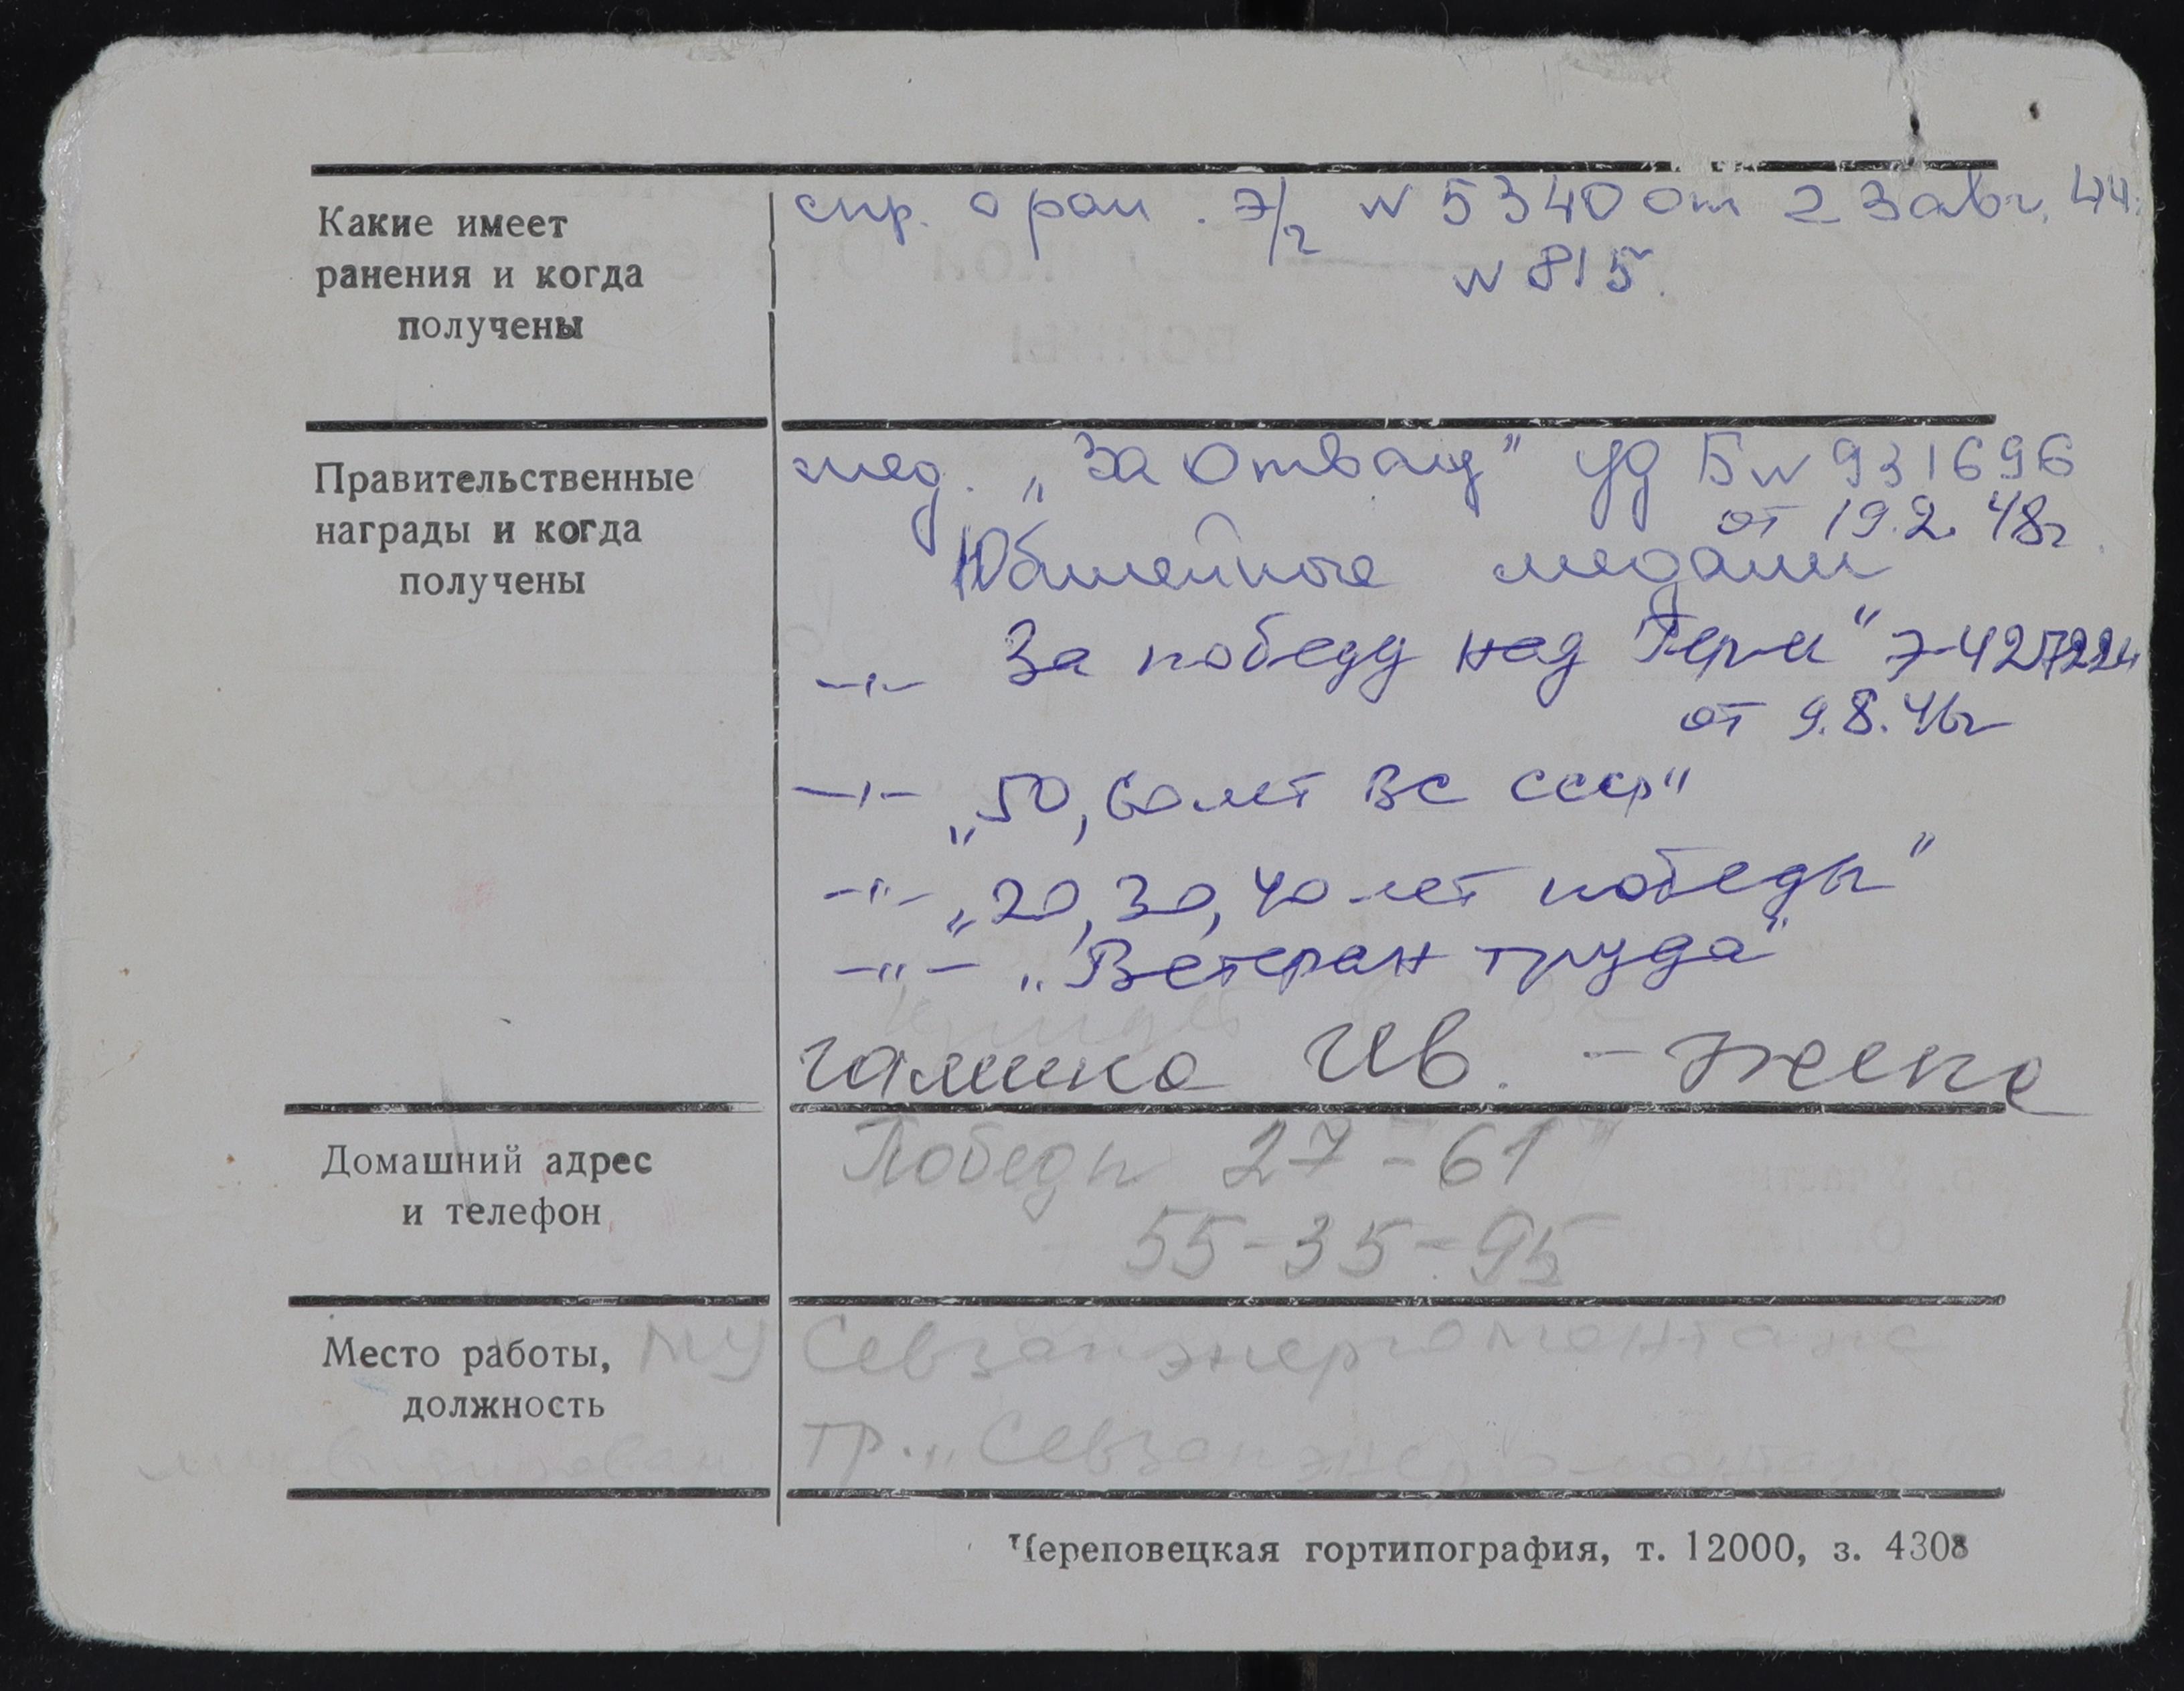 Какие имеет
ранения и когда
получены
спр. о ран. Э/г № 5340 от 23 авг. 44.
№ 815.
Правительственные
награды и когда
получены
мед. „За Отвагу" уд Б № 931696
от 19.2.48г.
Юбилейные медали
—"— За победу над Герм" Э-427224
от 9.8.46г
—"— „50, 60 лет ВС СССР"
—"— „20, 30, 40 лет победы"
—"— „Ветеран труда"
Галина Ив. - жена
Домашний адрес
и телефон
Победы 27-61
55-35-95
Место работы,
должность
МУ Севзапэнергомонтаж
тр. „Севзапэнергомонтаж
Череповецкая гортипография, т. 12000, з. 4308